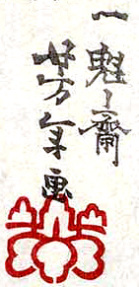 一魁斎
芳年画